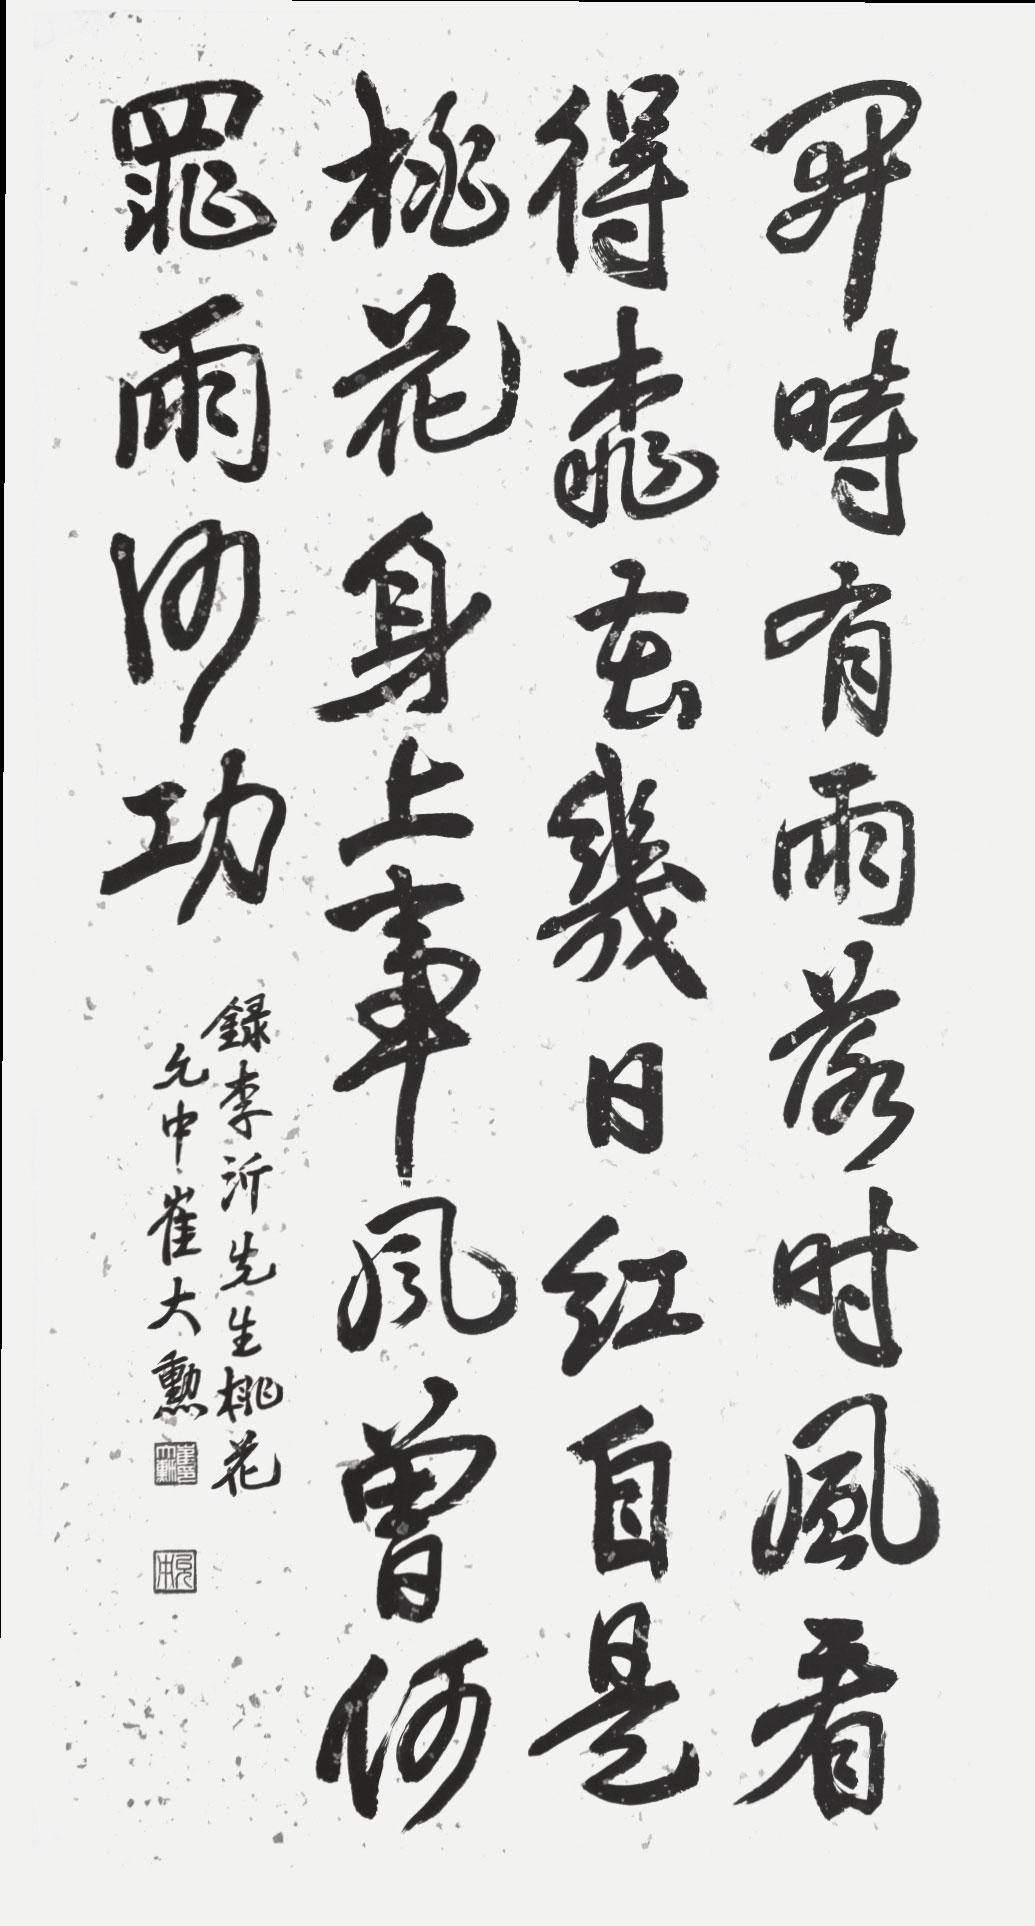 開時有雨落时風看
得桃花幾日紅自是
桃花身上事風曾何
罪雨何功
録李沂先生桃花
允中崔大勳